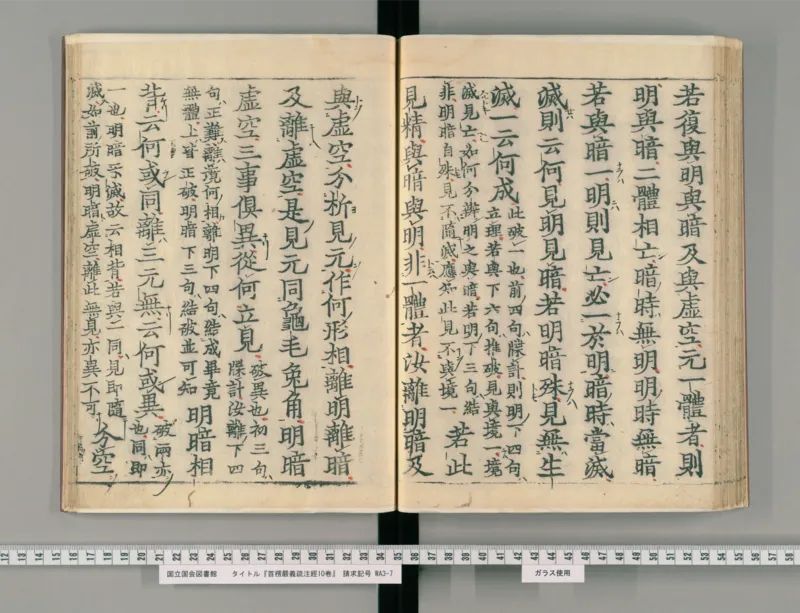 若復與明與暗及與虛空元一體者則
明與暗二體相亡暗時無明明時無暗
若與暗一明則見亡必一於明暗時當滅
滅則云何見明見暗若明暗殊見無生
滅一云何成
此破一也前四句牒計則明下四句
立理若與下六句推破見與境一境
滅見亡如何分辨明之與暗若明下三句結
非明暗自殊見不隨滅應知此見不與境一
若此
見精與暗與明非一體者汝離明暗及
與虛空分析見元作何形相離明離暗
及離虛空是見元同龜毛兔角明暗
虛空三事俱異從何立見
破異也初三句
牒計汝離下四
句正難離境何相離明下四句結成畢竟
無體上皆正破明暗下三句結破並可知
明暗相
背云何或同離三元無云何或異
破兩亦
也同即
一也明暗互滅故云相背若與二同見即隨
滅如前所破明暗虛空離此無見亦異不可
分空
国立国会図書館 タイトル『首楞嚴義疏注經10巻』 請求記号 WA3-7
ガラス使用